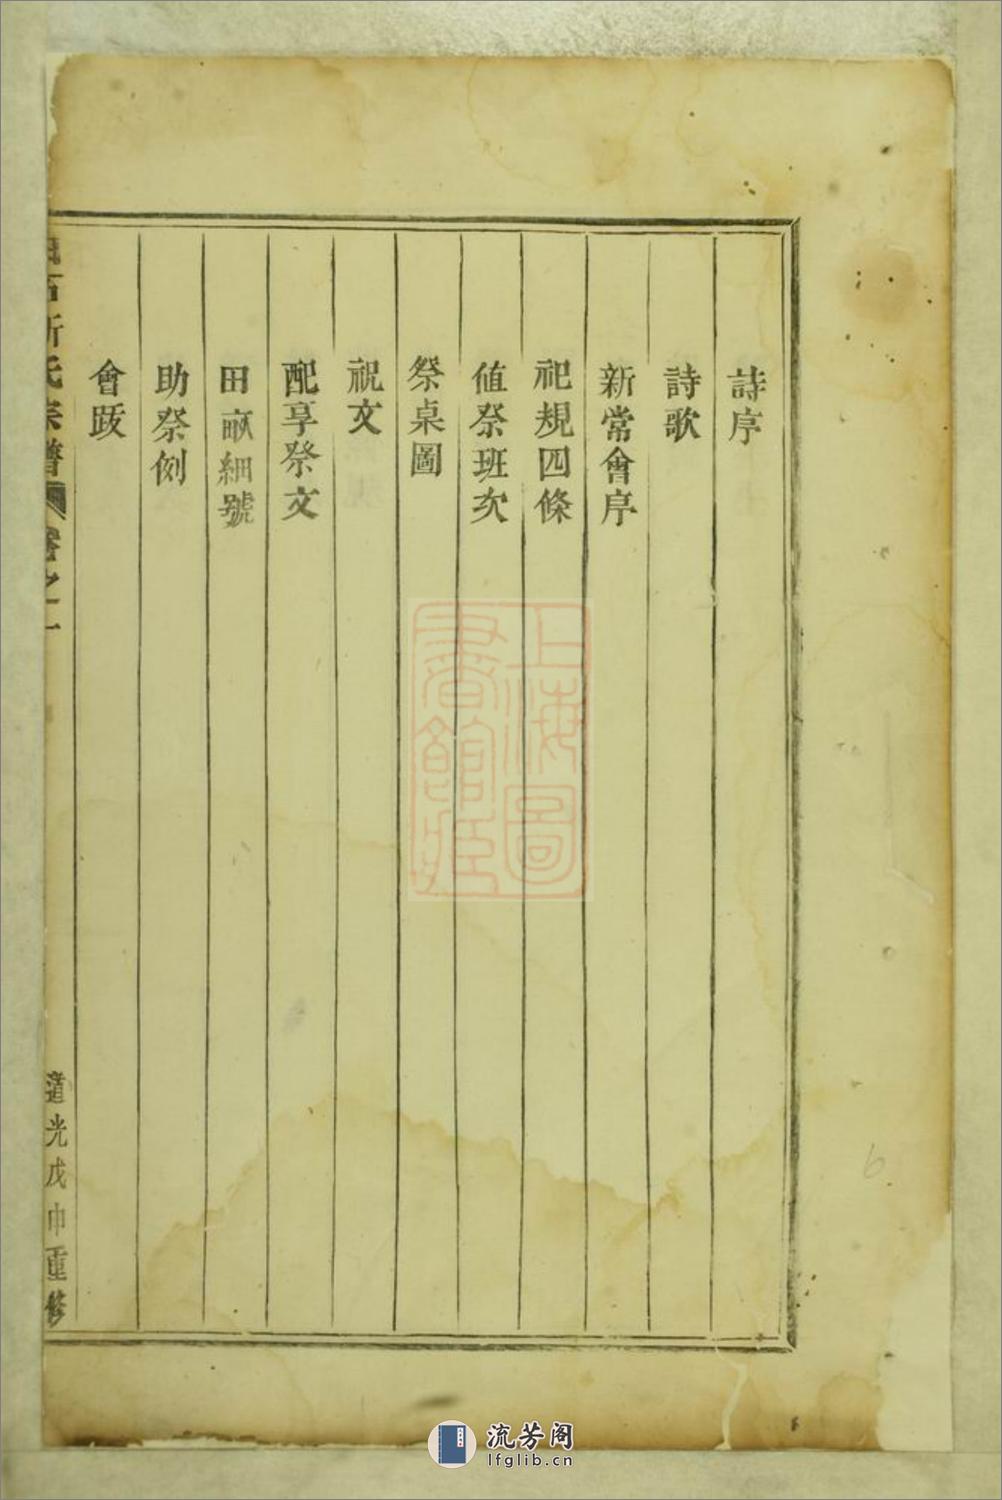 詩序
詩歌
新常會序
祀規四條
值祭班次
祭桌圖
祝文
配享祭文
田畝細號
助祭例
會跋
氏宗譜
卷之一
道光戊申重修
上海圖
書館藏
流芳阁
lfglib.cn
6